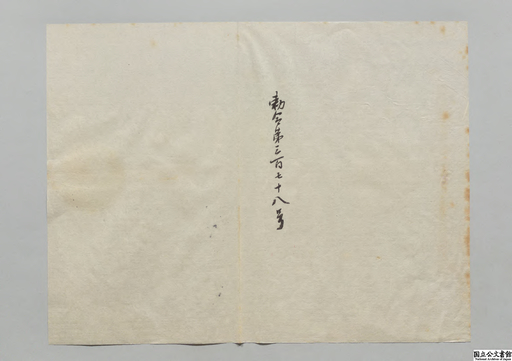 勅令第三百七十八号
国立公文書館
National Archives of Japan